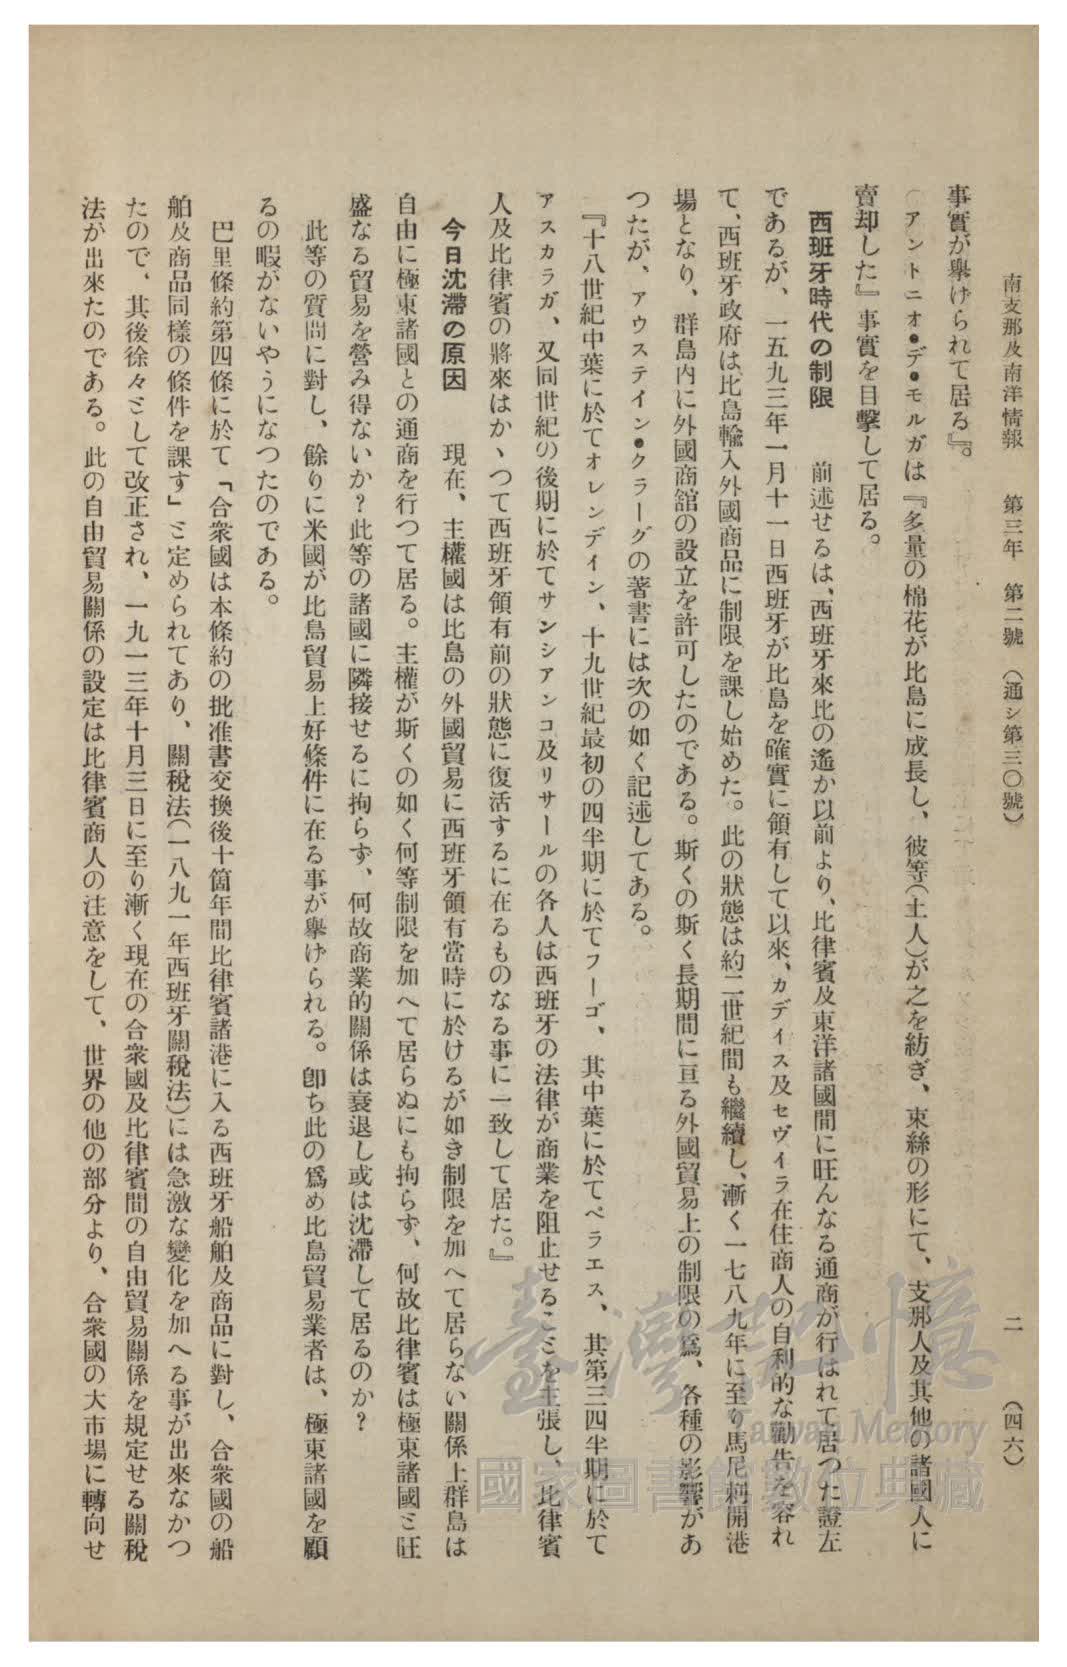 南支那及南洋情報　第三年　第二號　（通シ第三〇號）　二　（四六）
事實が擧げられて居る』。
アントニオ・デ・モルガは『多量の棉花が比島に成長し、彼等（土人）が之を紡ぎ、束絲の形にて、支那人及其他の諸國人に
賣却した』事實を目擊して居る。
西班牙時代の制限　前述せるは、西班牙來比の遙か以前より、比律賓及東洋諸國間に旺んなる通商が行はれて居つた證左
であるが、一五九三年一月十一日西班牙が比島を確實に領有して以來、カデイス及セヴイラ在住商人の自利的な勸告を容れ
て、西班牙政府は比島輸入外國商品に制限を課し始めた。此の狀態は約二世紀間も繼續し、漸く一七八九年に至り馬尼剌開港
場となり、群島內に外國商舘の設立を許可したのである。斯くの斯く長期間に亘る外國貿易上の制限の爲、各種の影響があ
つたが、アウステイン・クラーグの著書には次の如く記述してある。
『十八世紀中葉に於てオレンデイン、十九世紀最初の四半期に於てフーゴ、其中葉に於てペラエス、其第三四半期に於て
アスカラガ、又同世紀の後期に於てサンシアンコ及リサールの各人は西班牙の法律が商業を阻止せることを主張し、比律賓
人及比律賓の將來はかゝつて西班牙領有前の狀態に復活するに在るものなる事に一致して居た。』
今日沈滯の原因　現在、主權國は比島の外國貿易に西班牙領有當時に於けるが如き制限を加へて居らない關係上群島は
自由に極東諸國との通商を行つて居る。主權が斯くの如く何等制限を加へて居らぬにも拘らず、何故比律賓は極東諸國と旺
盛なる貿易を營み得ないか？此等の諸國に隣接せるに拘らず、何故商業的關係は衰退し或は沈滯して居るのか？
此等の質問に對し、餘りに米國が比島貿易上好條件に在る事が擧げられる。卽ち此の爲め比島貿易業者は、極東諸國を顧
るの暇がないやうになつたのである。
巴里條約第四條に於て「合衆國は本條約の批准書交換後十箇年間比律賓諸港に入る西班牙船舶及商品に對し、合衆國の船
舶及商品同樣の條件を課す」と定められてあり、關稅法（一八九一年西班牙關稅法）には急激な變化を加へる事が出來なかつ
たので、其後徐々として改正され、一九一三年十月三日に至り漸く現在の合衆國及比律賓間の自由貿易關係を規定せる關稅
法が出來たのである。此の自由貿易關係の設定は比律賓商人の注意をして、世界の他の部分より、合衆國の大市場に轉向せ
臺灣記憶
Taiwan Memory
國家圖書館數位典藏